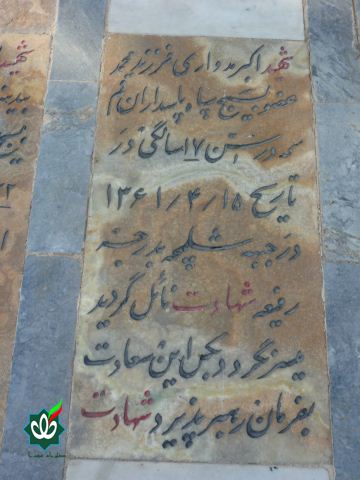 شهید اکبر مدواری فرزند محمد
عضو بسیج سپاه پاسداران قم
که در سن ۱۷ سالگی در
تاریخ ۱۵/۴/۱۳۶۱
در جبهه شلمچه بدرجه
رفیعه شهادت نائل گردید
میسر نگردد بکس این سعادت
بفرمان رهبر پذیرد شهادت
شهید